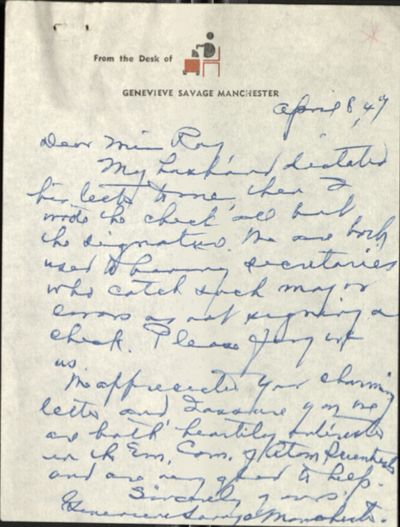 From the Desk of
GENEVIEVE SAVAGE MANCHESTER
April 8, 47
Dear Miss Ray,
My husband dictated
his letter to me, then I
wrote the check all but
the signature. We are both
used to having secretaries
who catch such major
errors as not signing a
check. Please forgive
us.
We appreciated your charming
letter and I assure you we
are both heartily interested
in the Em. Com. of Atom. Scientists
and are very glad to help.
Sincerely yours,
Genevieve Savage Manchester.